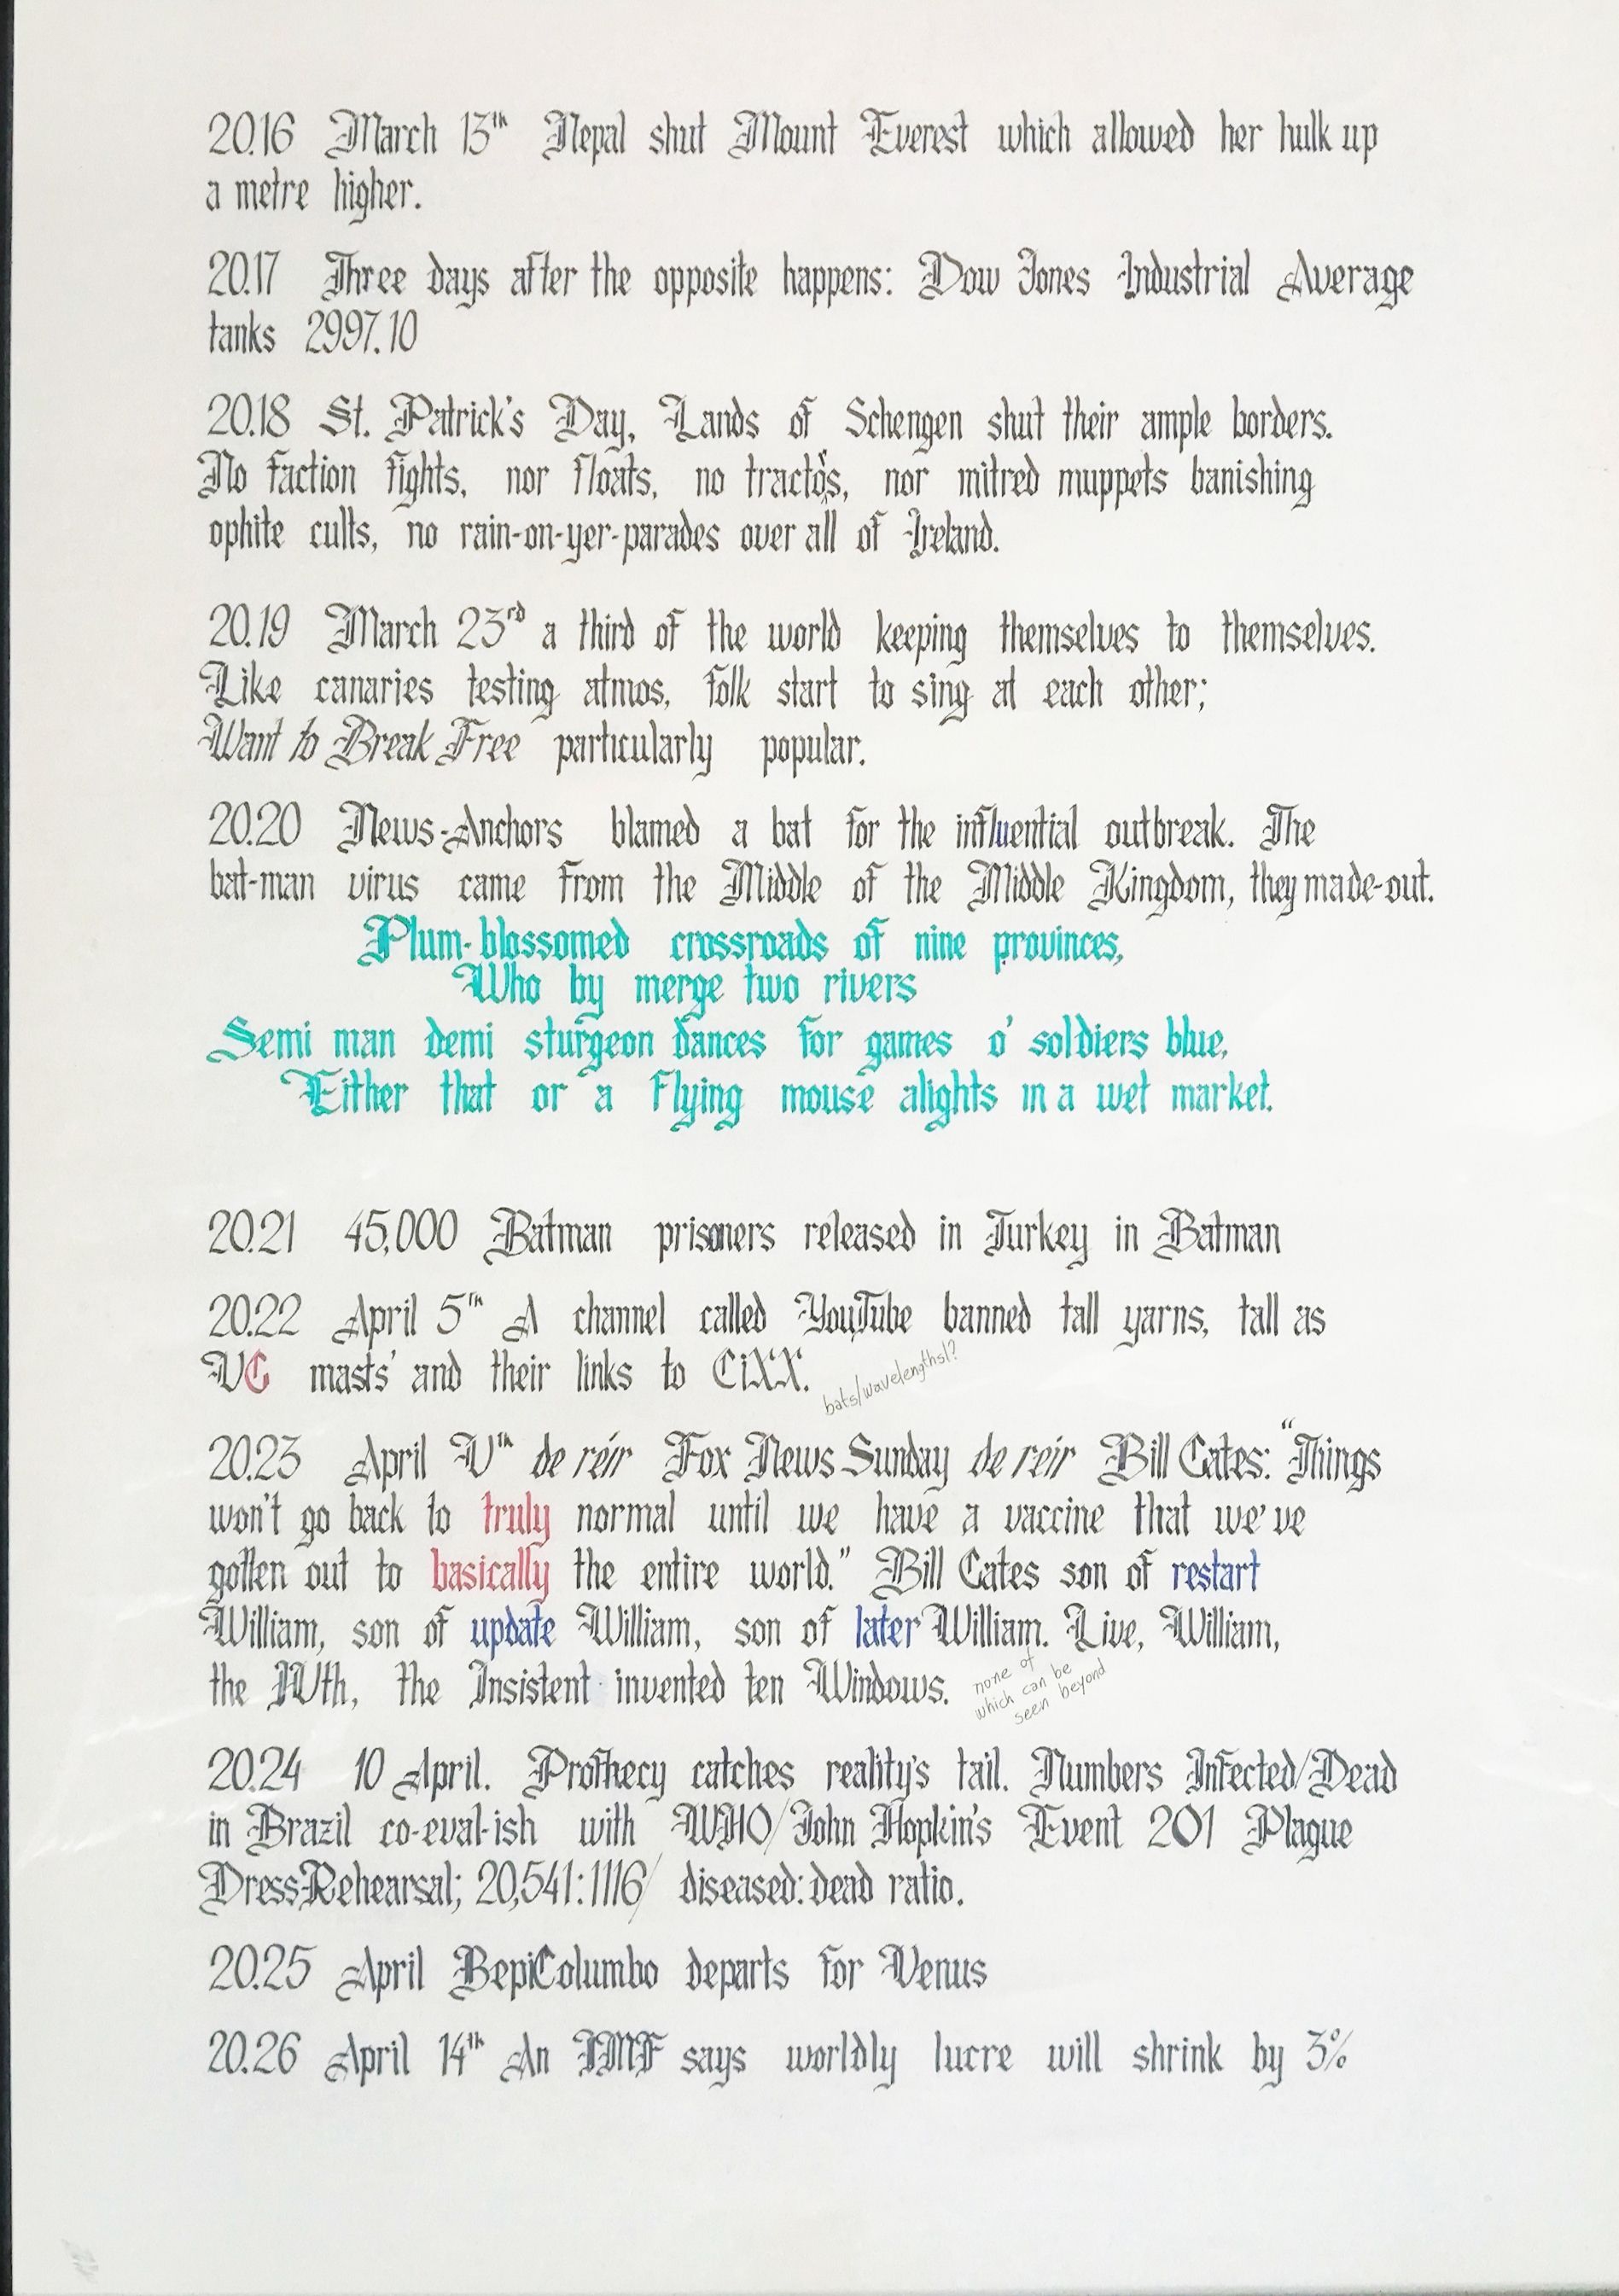 20.16 March 13th Nepal shut Mount Everest which allowed her hulk up
a metre higher.
20.17 Three days after the opposite happens: Dow Jones Industrial Average
tanks 2997.10
20.18 St. Patrick's Day, Lands of Schengen shut their ample borders.
No faction fights, nor floats, no tractors, nor mitred muppets banishing
ophite cults, no rain-on-yer-parades over all of Ireland.
20.19 March 23rd a third of the world keeping themselves to themselves.
Like canaries testing atmos, folk start to sing at each other;
Want to Break Free particularly popular.
20.20 News-Anchors blamed a bat for the influential outbreak. The
bat-man virus came from the Middle of the Middle Kingdom, they made-out.
Plum-blossomed crossroads of nine provinces,
Who by merge two rivers
Semi man demi sturgeon dances for games o' soldiers blue,
Either that or a flying mouse alights in a wet market.
20.21 45,000 Batman prisoners released in Turkey in Batman
20.22 April 5th A channel called YouTube banned tall yarns, tall as
VG masts' and their links to CiXX.
bats/wavelengths!?
20.23 April Vth de réir Fox News Sunday de réir Bill Gates: "Things
won't go back to truly normal until we have a vaccine that we've
gotten out to basically the entire world." Bill Gates son of restart
William, son of update William, son of later William. Live, William,
the IVth, the Insistent invented ten Windows.
none of
which can be
seen beyond
20.24 10 April. Prothecy catches reality's tail. Numbers Infected/Dead
in Brazil co-eval-ish with WHO/John Hopkin's Event 201 Plague
Dress Rehearsal; 20,541:1116/ diseased:dead ratio.
20.25 April BepiColumbo departs for Venus
20.26 April 14th An IMF says worldly lucre will shrink by 3%